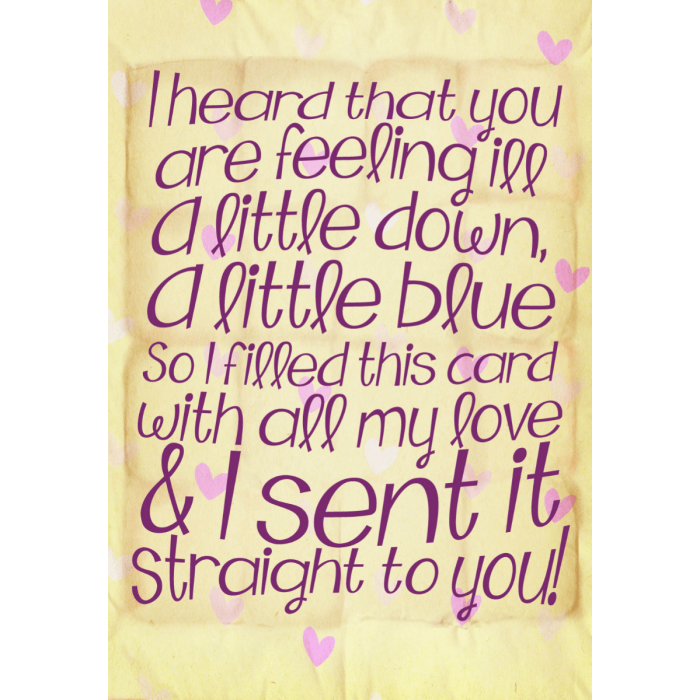 I heard that you
are feeling ill
a little down,
a little blue
So I filled this card
with all my love
& I sent it
straight to you!